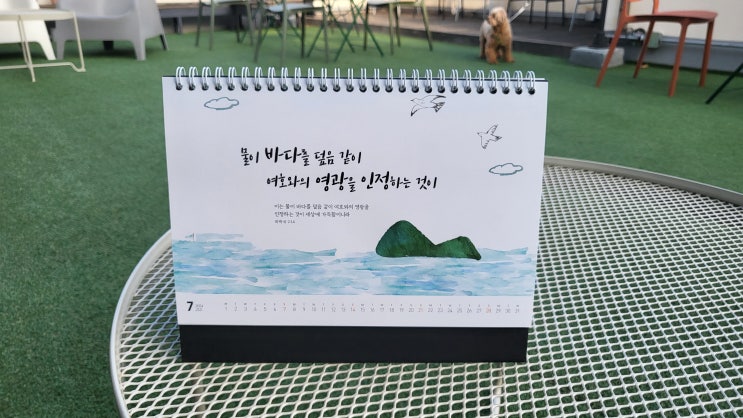 물이 바다를 덮음 같이
여호와의 영광을 인정하는 것이
이는 물이 바다를 덮음 같이 여호와의 영광을
인정하는 것이 세상에 가득함이니라
하박국 2:14
7
1 2 3 4 5 6 7 8 9 10 11 12 13 14 15 16 17 18 19 20 21 22 23 24 25 26 27 28 29 30 31